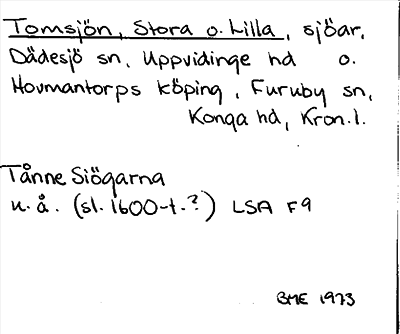 Tomsjön, Stora o. Lilla, sjöar,
Dädesjö sn, Uppvidinge hd o.
Hovmantorps köping, Furuby sn,
Konga hd, Kron.l.
Tånne Siögarna
u.å. (sl. 1600-t.?) LSA F9
BME 1973